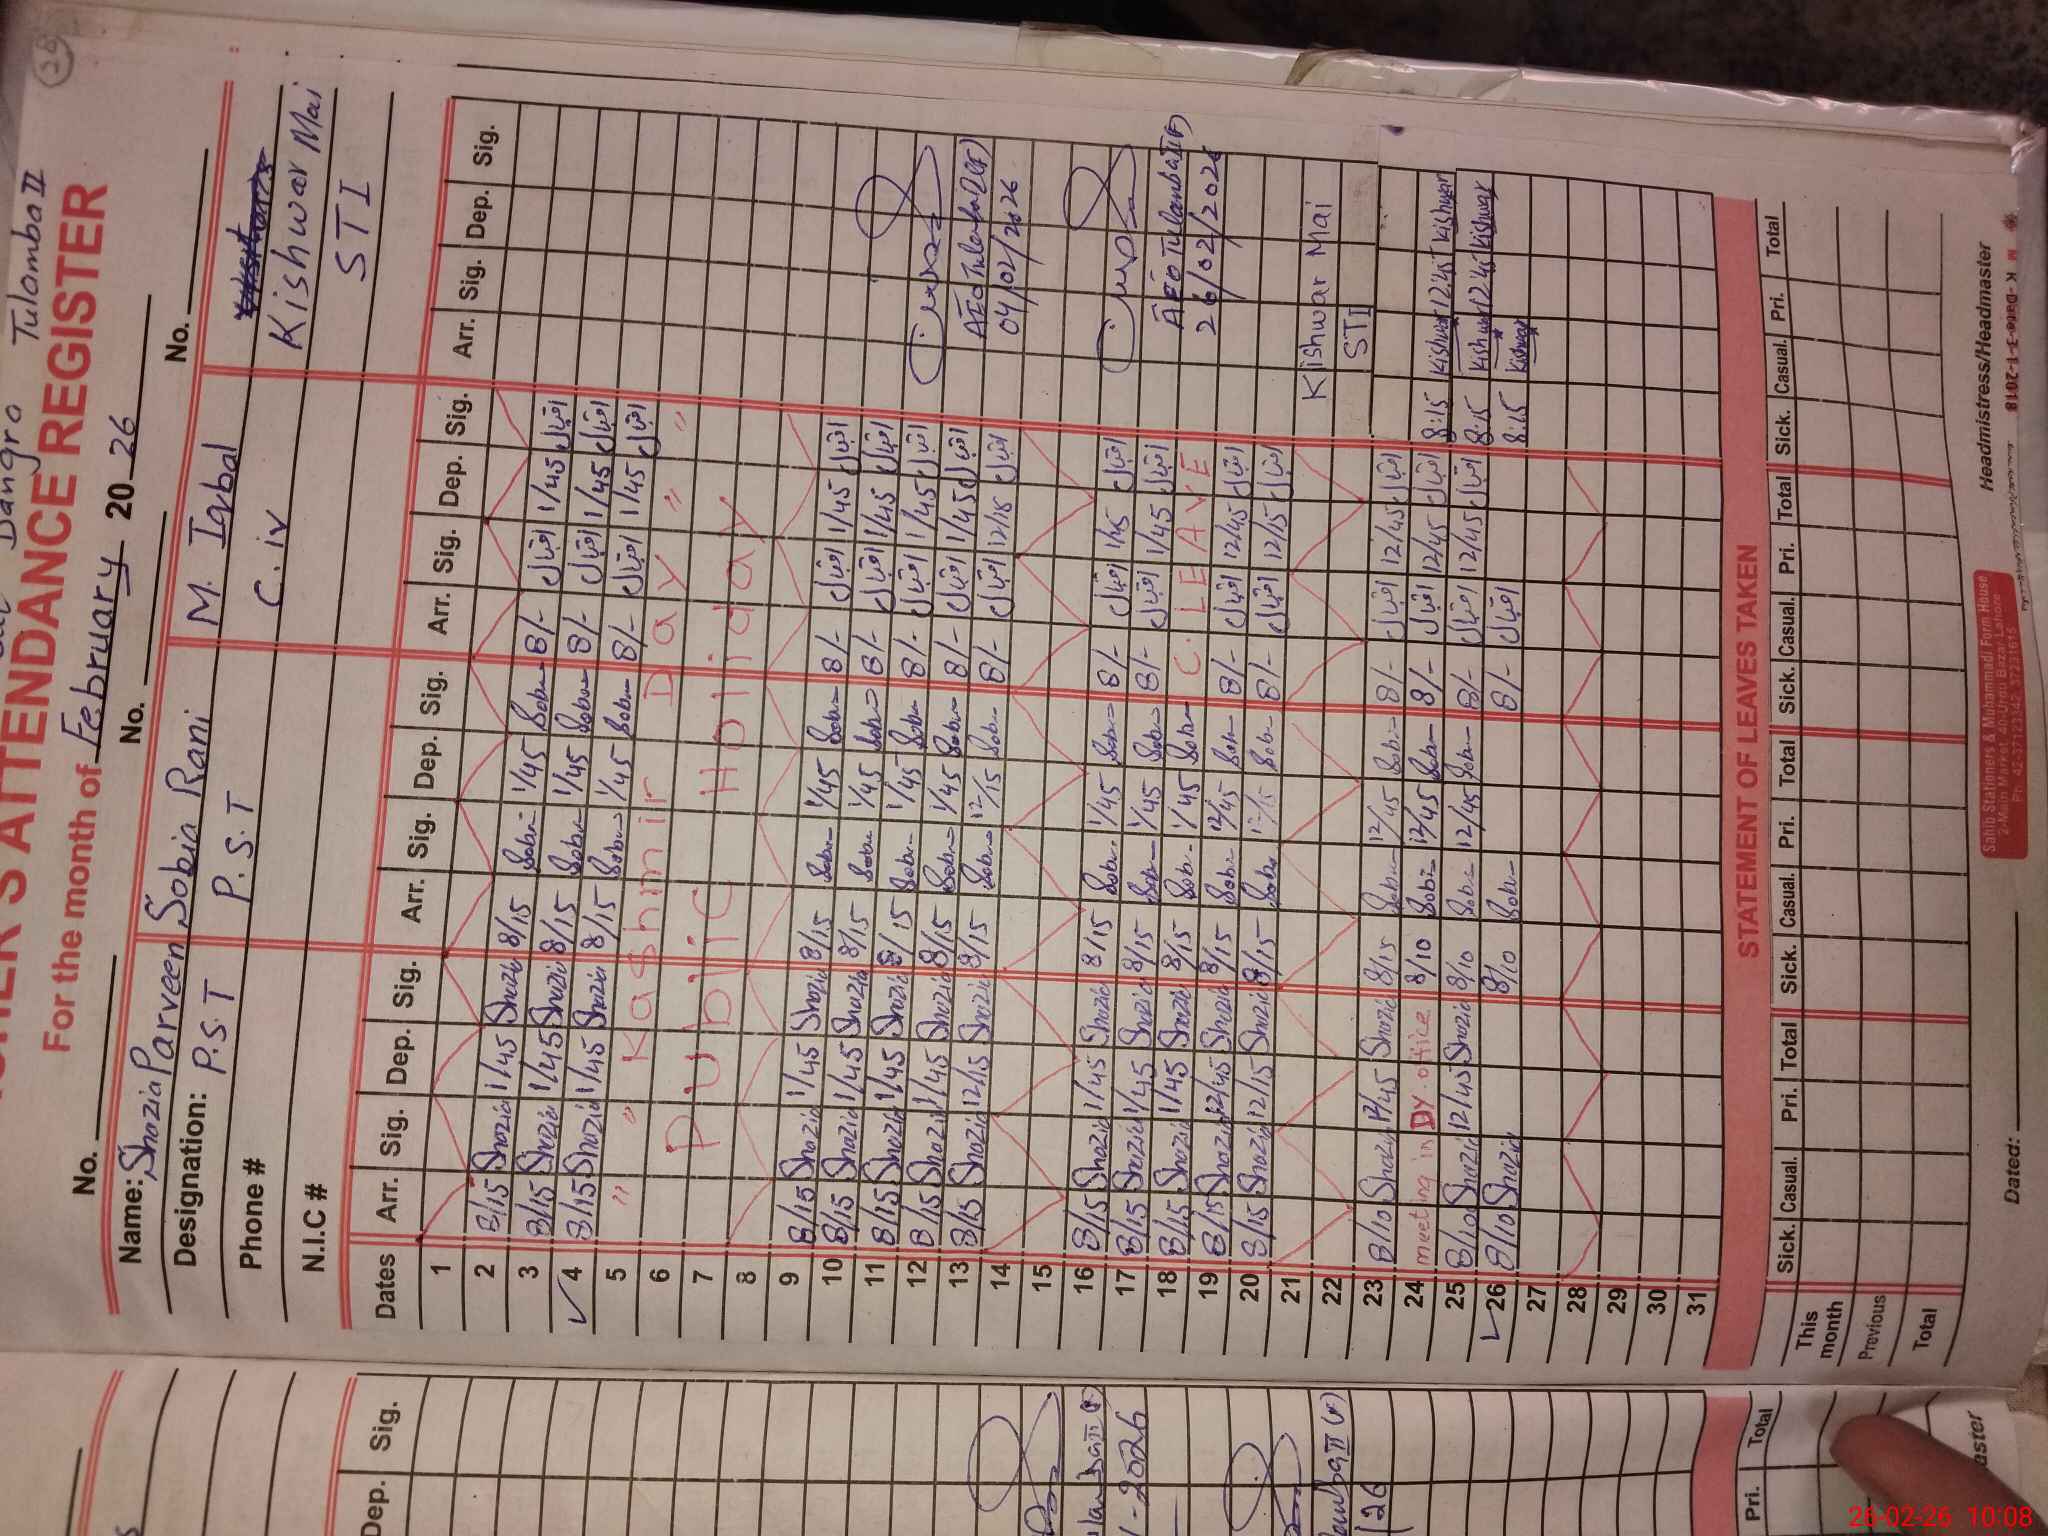 Dangra Tulamba II
ATTENDANCE REGISTER
For the month of February 2026
No. No. No.
Name: Shazia Parveen Sobia Rani M. Iqbal Kishwar Mai
Designation: P.S.T P.S.T C.iv STI
Phone #
N.I.C #
Dates Arr. Sig. Dep. Sig. Arr. Sig. Dep. Sig. Arr. Sig. Dep. Sig. Arr. Sig. Dep. Sig.
1
2 8/15 Shazia 1/45 Shazia 8/15 1/45 8/- اقبال 1/45 اقبال
3 8/15 Shazia 1/45 Shazia 8/15 1/45 8/- اقبال 1/45 اقبال
4 8/15 Shazia 1/45 Shazia 8/15 1/45 8/- اقبال 1/45 اقبال
5 " " Kashmir Day " "
6
7 Public Holiday
8
9 8/15 Shazia 1/45 Shazia 8/15 1/45 8/- اقبال 1/45 اقبال
10 8/15 Shazia 1/45 Shazia 8/15 1/45 8/- اقبال 1/45 اقبال
11 8/15 Shazia 1/45 Shazia 8/15 1/45 8/- اقبال 1/45 اقبال
12 8/15 Shazia 1/45 Shazia 8/15 1/45 8/- اقبال 1/45 اقبال
13 8/15 Shazia 12/15 Shazia 8/15 12/15 8/- اقبال 12/15 اقبال
AEO Tulamba II (F)
04/02/2026
14
15
16 8/15 Shazia 1/45 Shazia 8/15 1/45 8/- اقبال 1/45 اقبال
17 8/15 Shazia 1/45 Shazia 8/15 1/45 8/- اقبال 1/45 اقبال
18 8/15 Shazia 1/45 Shazia 8/15 1/45 C. LEAVE
19 8/15 Shazia 12/45 Shazia 8/15 12/45 8/- اقبال 12/45 اقبال
20 8/15 Shazia 12/15 Shazia 8/15 12/15 8/- اقبال 12/15 اقبال
AEO Tulamba II (F)
26/02/2026
21
22
Kishwar Mai
STI
23 8/10 Shazia 12/45 Shazia 8/15 12/45 8/- اقبال 12/45 اقبال
24 meeting in DY. office 8/10 12/45 8/- اقبال 12/45 اقبال 8:15 Kishwar 12:45 Kishwar
25 8/10 Shazia 12/45 Shazia 8/10 12/45 8/- اقبال 12/45 اقبال 8:15 Kishwar 12:45 Kishwar
26 8/10 Shazia 8/10 8/- اقبال 8:15 Kishwar
27
28
29
30
31
STATEMENT OF LEAVES TAKEN
Sick. Casual. Pri. Total Sick. Casual. Pri. Total Sick. Casual. Pri. Total Sick. Casual. Pri. Total
This month
Previous
Total
Dated:
Sahib Stationers & Muhammadi Form House
Headmistress/Headmaster
Dep. Sig.
Pri. Total
26-02-26 10:08